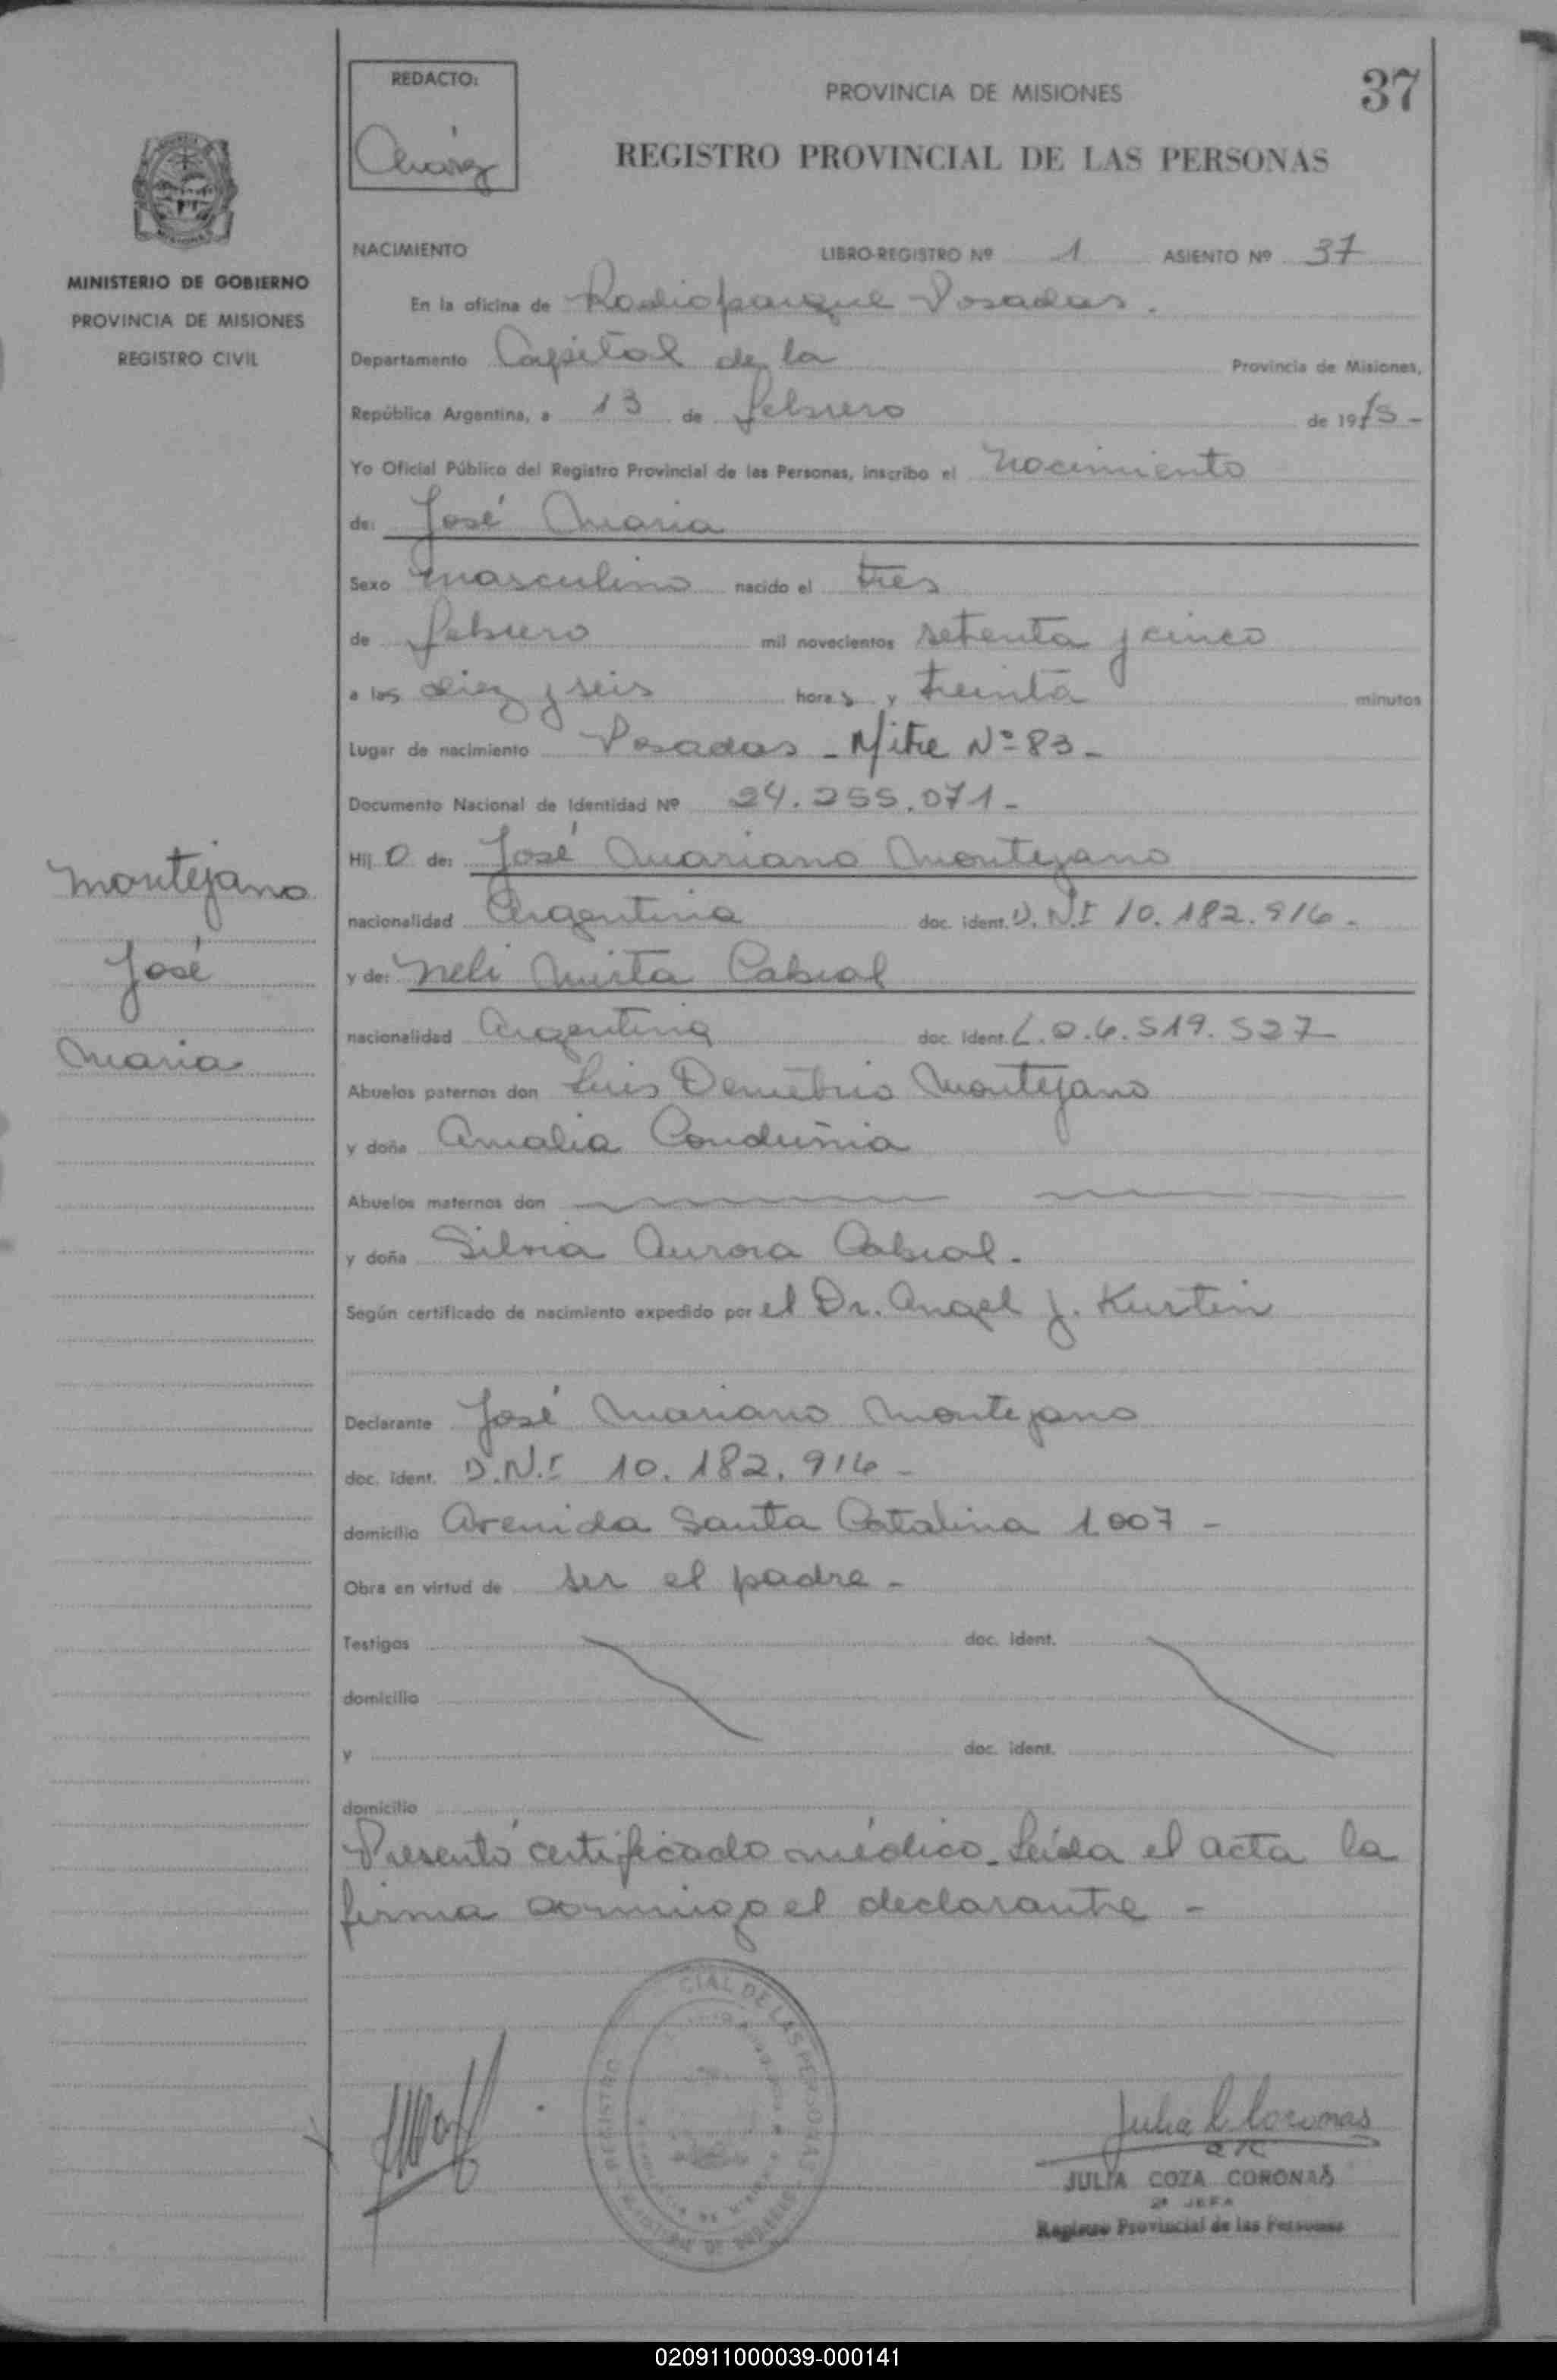 REDACTO:
PROVINCIA DE MISIONES
37
REGISTRO PROVINCIAL DE LAS PERSONAS
MINISTERIO DE GOBIERNO
PROVINCIA DE MISIONES
REGISTRO CIVIL
NACIMIENTO LIBRO-REGISTRO Nº 1 ASIENTO Nº 37
En la oficina de Radioparque Posadas.
Departamento Capital de la Provincia de Misiones,
República Argentina, a 13 de febrero de 1975 -
Yo Oficial Público del Registro Provincial de las Personas, inscribo el nacimiento
de: José Maria
Sexo masculino nacido el tres
de febrero mil novecientos setenta y cinco
a las diez y seis horas y treinta minutos
Lugar de nacimiento Posadas - Mitre Nº 83 -
Documento Nacional de Identidad Nº 24.255.071 -
Hijo de: José Mariano Montejano
nacionalidad Argentina doc. ident. D.N.I 10.182.916 -
y de: Neli Mirta Cabral
nacionalidad Argentina doc. ident. L.C.6.519.527
Abuelos paternos don Luis Demetrio Montejano
y doña Amalia
Abuelos maternos don
y doña Silvia Aurora Cabral.
Según certificado de nacimiento expedido por el Dr. Angel J. Kurtin
Declarante José Mariano Montejano
doc. ident. D.N.I 10.182.916 -
domicilio Avenida Santa Catalina 1007 -
Obra en virtud de ser el padre -
Testigos doc. ident.
domicilio
y doc. ident.
domicilio
Presentó certificado médico. Leída el acta la
firma conmigo el declarante -
Montejano
José
Maria
CIAL DE LAS PERSONAS
REGISTRO
Julia C Coronas
JULIA COZA CORONAS
2ª JEFA
Registro Provincial de las Personas
020911000039-000141